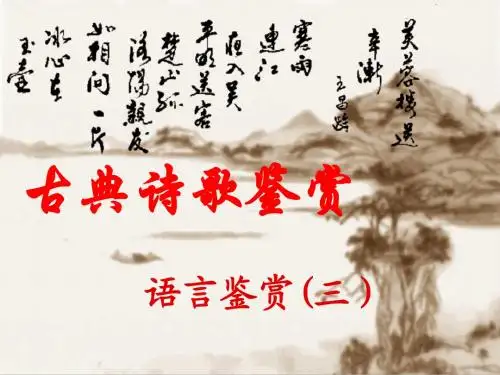 芙蓉楼送
辛漸
王昌龄
寒雨
連江
夜入吴
平明送客
楚山孤
洛陽親友
如相问一片
冰心在
玉壺
古典诗歌鉴赏
语言鉴赏(三)